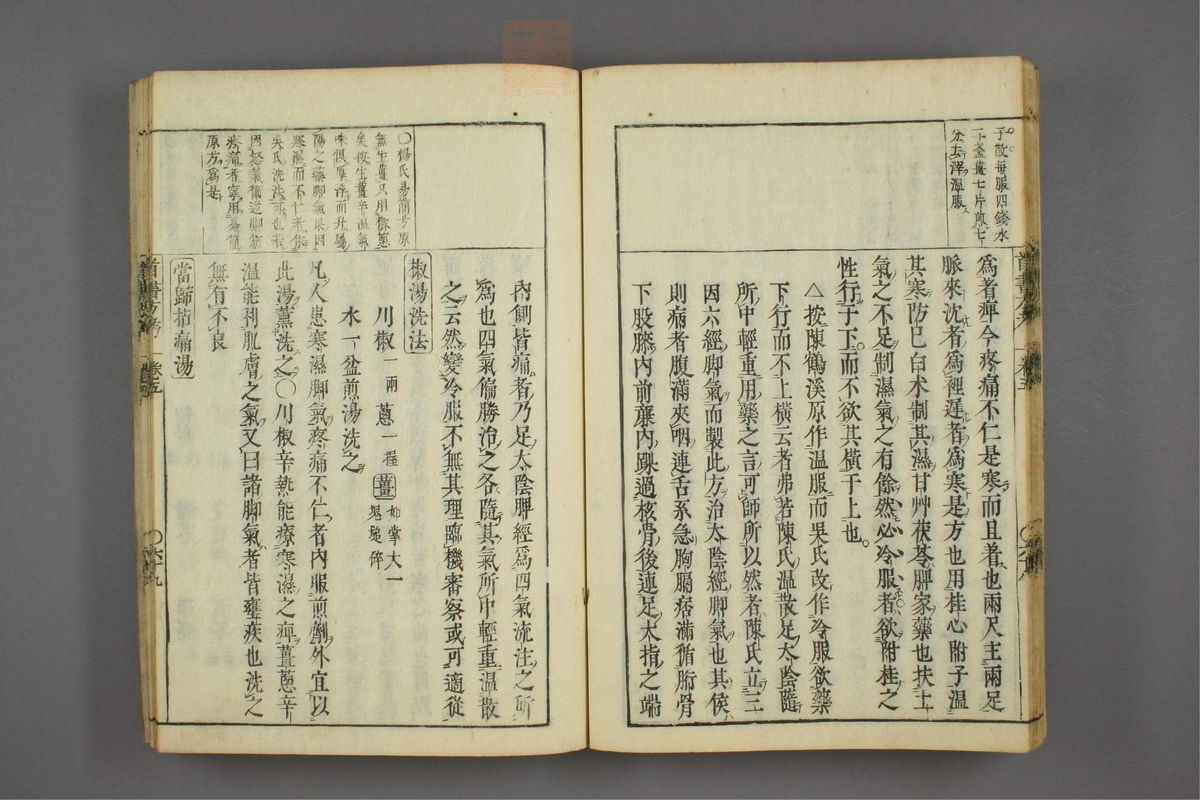 子散每服四錢水
二盞薑七片煎七
分去滓溫服
爲者痺今疼痛不仁是寒而且着也兩尺主兩足
脈來沈者爲裡遲者爲寒是方也用桂心附子溫
其寒防已白术制其濕甘艸茯苓脾家藥也扶土
氣之不足制濕氣之有餘然必冷服者欲附桂之
性行于下而不欲其橫于上也
△按陳鶴溪原作溫服而吳氏改作冷服欲藥
下行而不上橫云者弗若陳氏溫散足太陰隨
所中輕重用藥之言可師所以然者陳氏立三
因六經脚氣而製此方治太陰經脚氣也其候
則病者腹滿夾咽連舌系急胸膈痞滿循胻骨
下股膝內前廉內踝過核骨後連足大指之端
〇楊氏易簡方原
無生薑又用椒蔥
矣按生薑辛溫氣
味俱厚浮而升屬
陽之藥脚氣果因
寒濕而不仁者
吳氏洗法可也若
因怒氣
者寧用易簡
原方爲是
內側皆痛者乃足太陰脾經爲四氣流注之所
爲也四氣偏勝治之各隨其氣所中輕重溫散
之云然變冷服不無其理臨機審察或可適從
椒湯洗法
川椒一兩 蔥一握 薑如掌大一塊搥碎
水一盆煎湯洗之
凡人患寒濕脚氣疼痛不仁者內服煎劑外宜以
此湯薰洗之〇川椒辛熱能療寒濕之痺薑蔥辛
溫能利肌膚之氣又曰諸脚氣者皆壅疾也洗之
無有不良
當歸拈痛湯
卷五
〇六十九